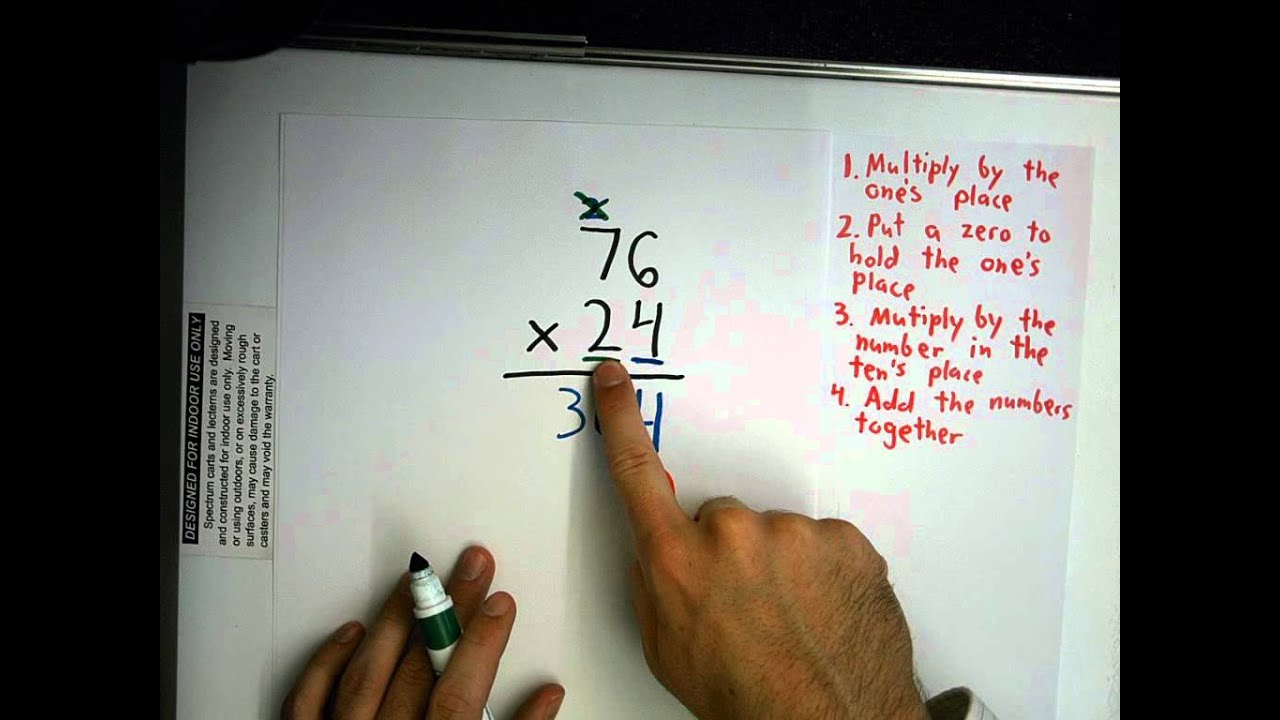 76
x 24
34
1. Multiply by the
one's place
2. Put a zero to
hold the one's
place
3. Mutiply by the
number in the
ten's place
4. Add the numbers
together
DESIGNED FOR INDOOR USE ONLY
Spectrum carts and lecterns are designed
and constructed for indoor use only. Moving
or using outdoors, or on excessively rough
surfaces, may cause damage to the cart or
casters and may void the warranty.